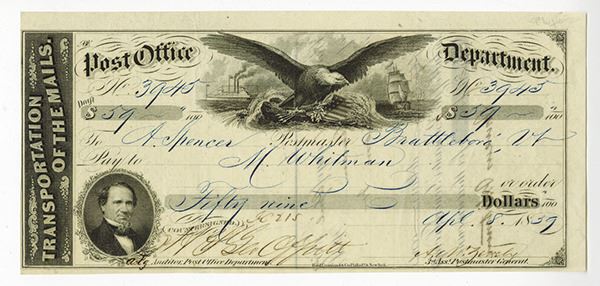 TRANSPORTATION
OF THE MAILS.
Post Office Department.
No. 3945 No. 3945
Draft
$59 — /100 $59 — /100
To A. Spencer Postmaster Brattleboro, Vt
Pay to M. Whitman
or order
Fifty nine Dollars /100
Apl. 8. 1859
COUNTERSIGNED,
Auditor, Post Office Department. 3d Asst. Postmaster General.